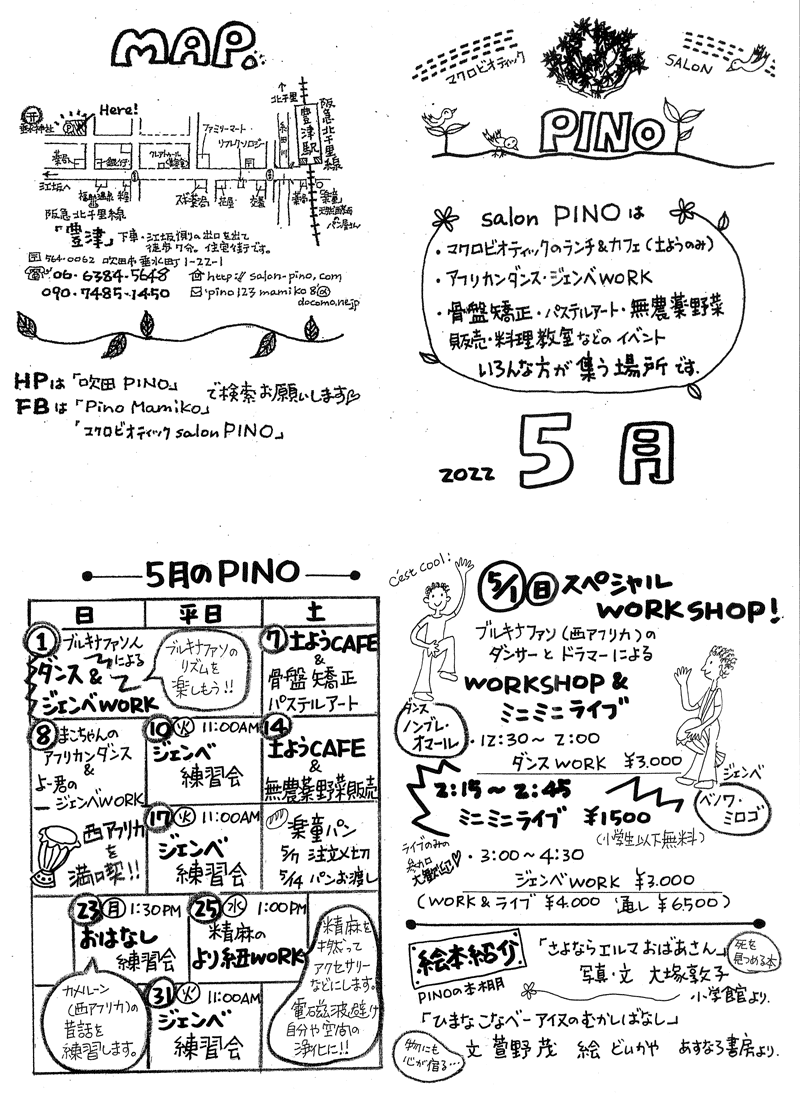 MAP.
Here!
北千里
阪急北千里線
豊津駅
ファミリーマート
江坂へ
阪急北千里線
「豊津」下車・江坂側の出口を出て
徒歩7分。住宅街です。
〒564-0062 吹田市垂水町1-22-1
☎06-6384-5648
http://salon-pino.com
090-7485-1450
pino123mamiko8@
docomo.ne.jp
HPは「吹田 PINO」
FBは「Pino Mamiko」
「マクロビオティック salon PINO」
で検索お願いします♡
マクロビオティック
SALON
PINO
salon PINO は
・マクロビオティックのランチ&カフェ(土ようのみ)
・アフリカンダンス・ジェンベWORK
・骨盤矯正・パステルアート・無農薬野菜
販売・料理教室などのイベント
いろんな方が集う場所です。
2022 5月
5月のPINO
日 平日 土
1 ブルキナファソ人
による
ダンス&
ジェンベWORK
ブルキナファソの
リズムを
楽しもう!!
7 土ようCAFE
&
骨盤矯正
パステルアート
8 まこちゃんの
アフリカンダンス
&
よー君の
ジェンベWORK
10 火 11:00AM
ジェンベ
練習会
14
土ようCAFE
&
無農薬野菜販売
西アフリカ
を
満喫!!
17 火 11:00AM
ジェンベ
練習会
楽童パン
5/7 注文〆切
5/14 パンお渡し
23 月 1:30PM
おはなし
練習会
25 水 1:00PM
精麻の
より紐WORK
カメルーン
(西アフリカ)の
昔話を
練習します。
31 火 11:00AM
ジェンベ
練習会
精麻を
なって
アクセサリー
などにします。
電磁波避け
自分や空間の
浄化に!!
C'est cool!
5/1 日 スペシャル
WORKSHOP!
ブルキナファソ(西アフリカ)の
ダンサーとドラマーによる
WORKSHOP &
ミニミニライブ
ダンス
ノンブレ・
オマール
・12:30〜2:00
ダンスWORK ¥3.000
2:15〜2:45
ミニミニライブ ¥1500
(小学生以下無料)
ジェンベ
ベノワ・
ミロゴ
ライブのみの
参加
大歓迎♡
・3:00〜4:30
ジェンベWORK ¥3.000
(WORK&ライブ ¥4.000 通し ¥6.500)
絵本紹介
PINOの本棚
「さよならエルマおばあさん」
写真・文 大塚敦子
小学館より.
死を
見つめる本
「ひまなこなべーアイヌのむかしばなし」
文 萱野茂 絵 どいかや あすなろ書房より.
物にも
心が宿る…